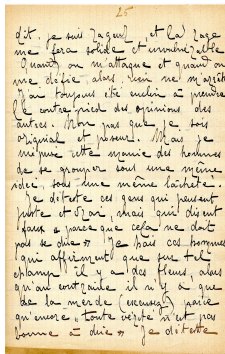 25
dit. je suis rageur, et la rage
me fera solide et invulnérable
Quand on m'attaque et quand on
me défie, alors rien ne m'arrête
J'ai toujours été enclin à prendre
le contre-pied des opinions des
autres. Non pas que je sois
original et poseur. Mais je
méprise cette manie des hommes
de se grouper sous une même
idée, sous une même lâcheté.
Je déteste ces gens qui pensent
juste et vrai, mais qui disent
faux « parce que cela ne doit
pas se dire » Je hais ces hommes
qui affirment que sur tel
champ il y a des fleurs, alors
qu'au contraire il n'y a que
de la merde (excusez) parce
qu'encore « toute vérité n'est pas
bonne à dire » Je déteste